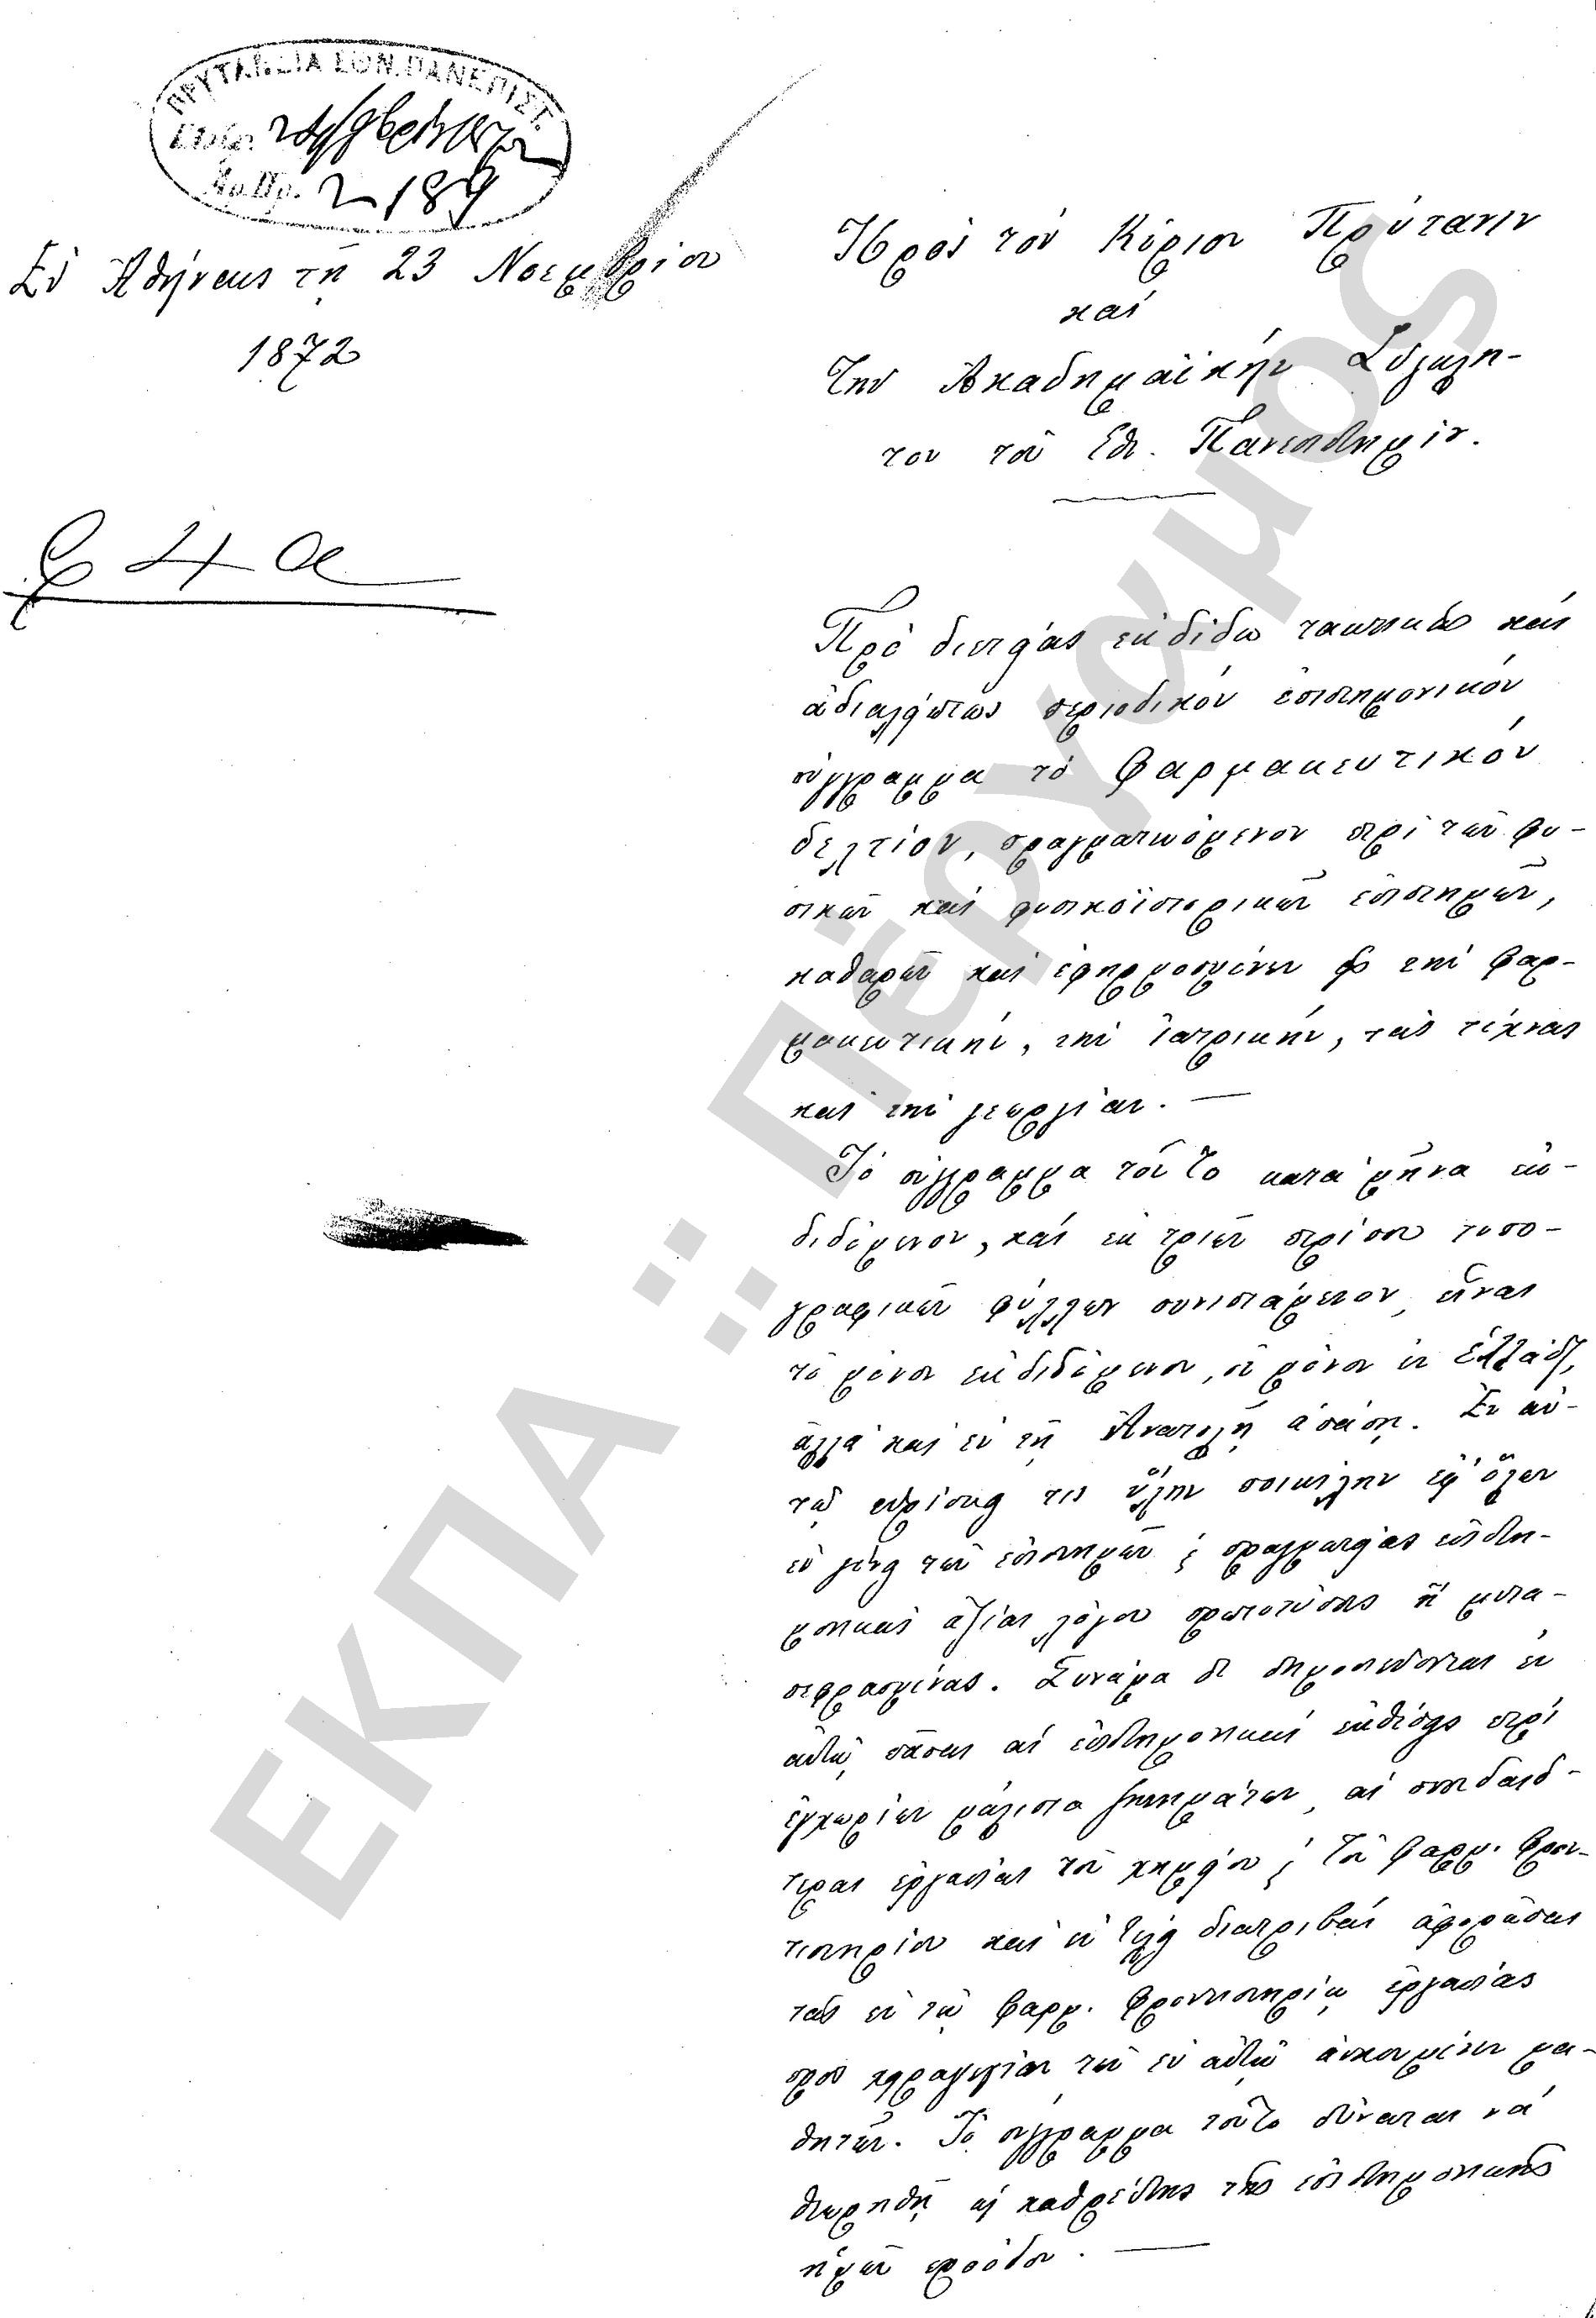 ΠΡΥΤΑΝΕΙΑ ΕΘΝ. ΠΑΝΕΠΙΣΤ.
Ἀρ. Πρ. 2189
Ἐν Ἀθήναις τῇ 23 Νοεμβρίου
1872
Πρὸς τὸν Κύριον Πρύτανιν
καὶ
τὴν Ἀκαδημαϊκὴν Σύγκλη-
τον τοῦ Ἐθ. Πανεπιστημίου.
Πρὸ διετίας ἐκδίδω τακτικῶς καὶ
ἀδιαλείπτως περιοδικὸν ἐπιστημονικὸν
σύγγραμμα τὸ Φαρμακευτικὸν
δελτίον, πραγματευόμενον περὶ τῶν φυ-
σικῶν καὶ φυσικοϊστορικῶν ἐπιστημῶν,
καθαρῶν καὶ ἐφηρμοσμένων εἰς τὴν φαρ-
μακευτικήν, τὴν ἰατρικήν, τὰς τέχνας
καὶ τὴν γεωργίαν. —
Τὸ σύγγραμμα τοῦτο κατὰ μῆνα ἐκ-
διδόμενον, καὶ ἐκ τριῶν περίπου τυπο-
γραφικῶν φύλλων συνιστάμενον, εἶναι
τὸ μόνον ἐκδιδόμενον, οὐ μόνον ἐν Ἑλλάδι,
ἀλλὰ καὶ ἐν τῇ Ἀνατολῇ ἁπάσῃ. Ἐν αὐ-
τῷ εὑρίσκει τις ὕλην ποικίλην ἐφ' ὅλων
ἐν γένει τῶν ἐπιστημῶν καὶ πραγματείας ἐπιστη-
μονικὰς ἀξίας λόγου πρωτοτύπους ἢ μετα-
πεφρασμένας. Συνάμα δὲ δημοσιεύονται ἐν
αὐτῷ πᾶσαι αἱ ἐπιστημονικαὶ ἐκθέσεις περὶ
ἐγχωρίων μάλιστα ζητημάτων, αἱ σπουδαιό-
τεραι ἐργασίαι τοῦ χημείου καὶ τοῦ Φαρμ. Φρον-
τιστηρίου καὶ ἐν τέλει διατριβαὶ ἀφορῶσαι
τὰς ἐν τῷ Φαρμ. Φροντιστηρίῳ ἐργασίας
πρὸς χειραγωγίαν τῶν ἐν αὐτῷ ἀσκουμένων μα-
θητῶν. Τὸ σύγγραμμα τοῦτο δύναται νὰ
θεωρηθῇ ὡς καθρέπτης τῆς ἐπιστημονικῆς
ἡμῶν προόδου. —
ΕΚΠΑ :: Πέργαμος